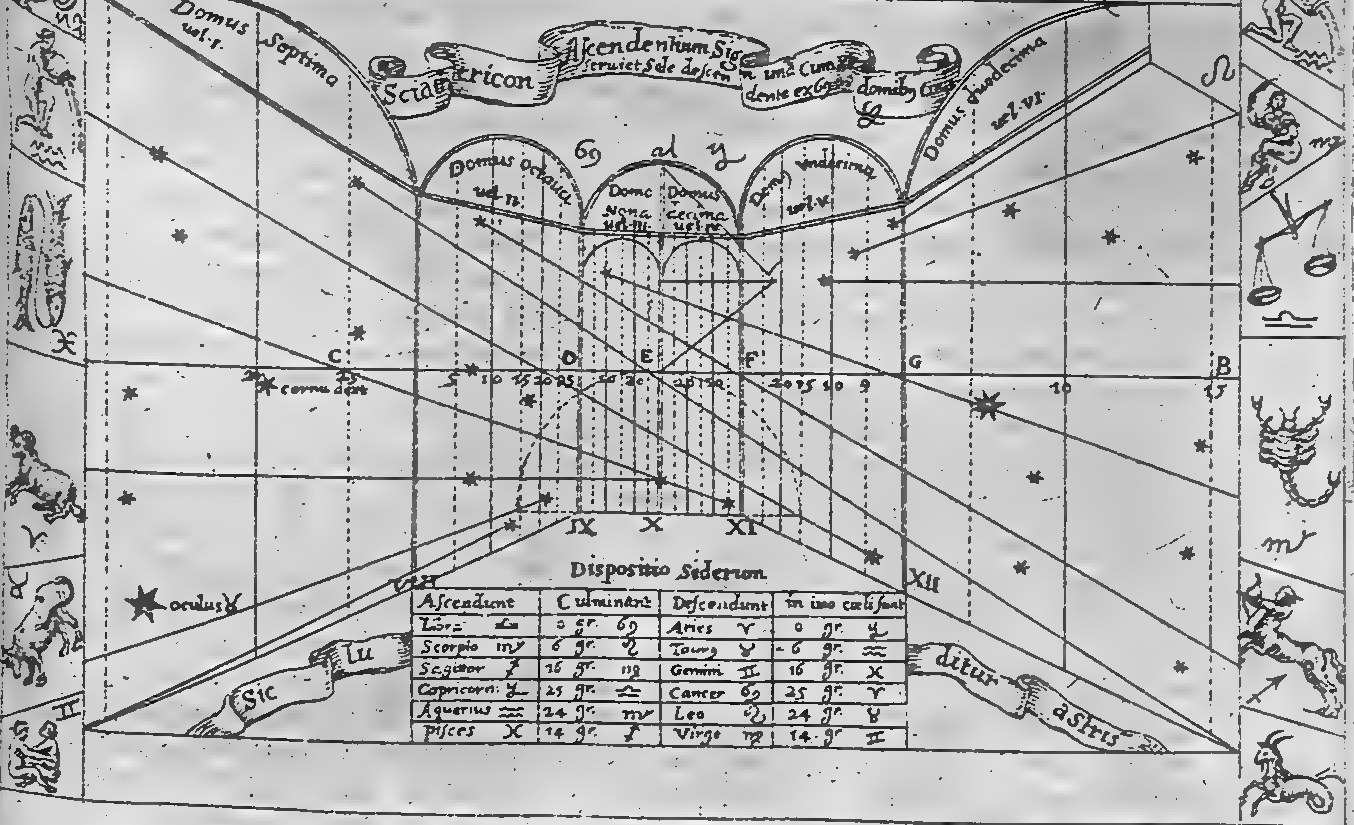 Domus Septima
uel. I.
Sciatericon
Ascendentium Sig
una cum
domib9
Domus Duodecima
uel. VI.
♋ ad ♑
Domus Octaua
uel II.
Domus
Nona
uel III.
Domus
decima
uel IV
Domus Vndecima
uel. V.
♌
♍
♎
♓
C D E F G B
20 25 5 10 15 20 25 10 20 20 10 20 15 10 5 10 15
cornu dext
♈
IX X XI
♏
H XII
Dispositio Siderum
oculus ♉
♉
Ascendunt Culminant Descendunt in imo cœli sunt
Libra ♎ 0 gr. ♋ Aries ♈ 0 gr. ♑
Scorpio ♏ 6 gr. ♌ Taurg ♉ 6 gr. ♒
Sagittar ♐ 16 gr. ♍ Gemini ♊ 16 gr. ♓
Capricorn: ♑ 25 gr. ♎ Cancer ♋ 25 gr. ♈
Aquerius ♒ 24 gr. ♏ Leo ♌ 24 gr. ♉
pisces ♓ 14 gr. ♐ Virgo ♍ 14 gr. ♊
Sic lu
ditur astris
♊